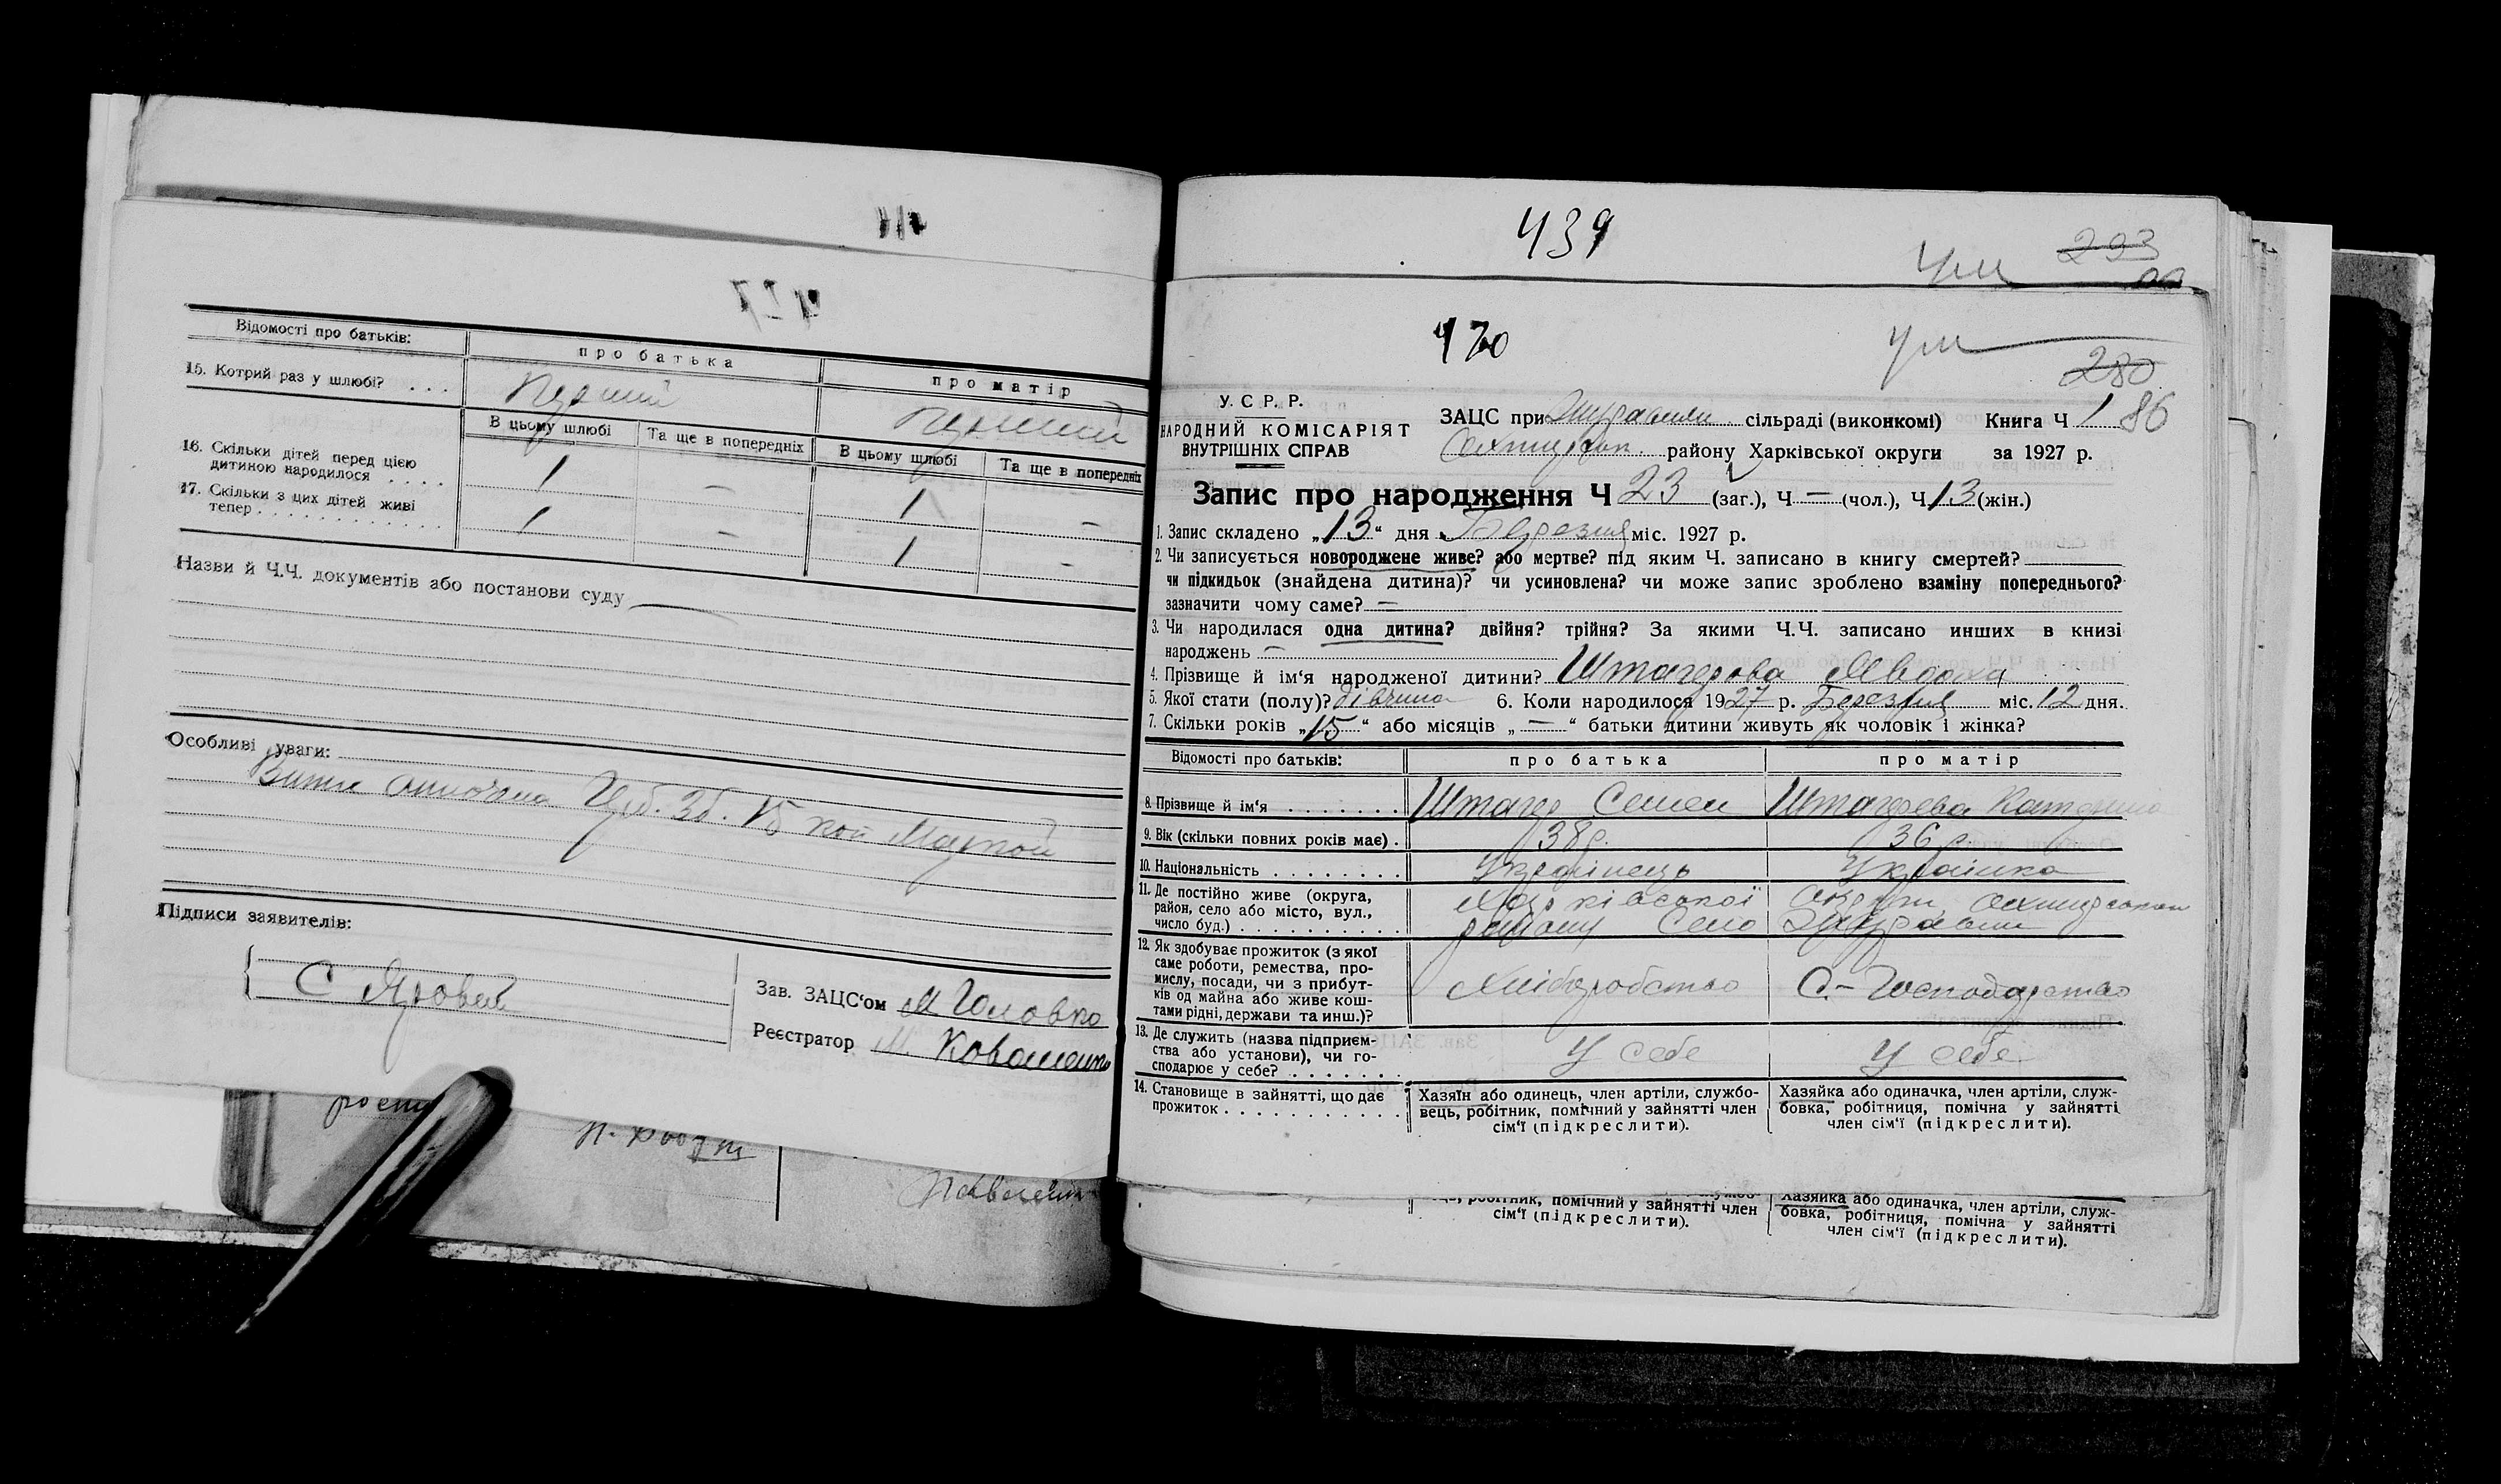 427
Відомості про батьків:
про батька
про матір
15. Котрий раз у шлюбі? . . .
Перший
Перший
В цьому шлюбі
Та ще в попередніх
В цьому шлюбі
Та ще в попередніх
16. Скільки дітей перед цією
дитиною народилося . . . .
1
—
1
—
17. Скільки з цих дітей живі
тепер . . . . . . . . . . . .
1
—
1
—
Назви й Ч.Ч. документів або постанови суду —
Особливі уваги:
Підписи заявителів:
С Яровий
Зав. ЗАЦС‘ом М Головко
Реєстратор М. Коваленко
439
293
430
280
У. С. Р. Р.
НАРОДНИЙ КОМІСАРІЯТ
ВНУТРІШНІХ СПРАВ
ЗАЦС при Журавли сільраді (виконкомі) Книга Ч 1 86
Охтирськ. району Харківської округи за 1927 р.
Запис про народження Ч 23 (заг.), Ч — (чол.), Ч 13 (жін.)
1. Запис складено „13“ дня Березня міс. 1927 р.
2. Чи записується новороджене живе? або мертве? під яким Ч. записано в книгу смертей?
чи підкидьок (знайдена дитина)? чи усиновлена? чи може запис зроблено взаміну попереднього?
зазначити чому саме? —
3. Чи народилася одна дитина? двійня? трійня? За якими Ч.Ч. записано инших в книзі
народжень —
4. Прізвище й ім‘я народженої дитини? Штагерова Явдоха
5. Якої стати (полу)? дівчина 6. Коли народилося 1927 р. Березня міс. 12 дня.
7. Скільки років „15“ або місяців „—“ батьки дитини живуть як чоловік і жінка?
Відомості про батьків:
про батька
про матір
8. Прізвище й ім‘я . . . . . . .
Штагер Семен
Штагерева Катерина
9. Вік (скільки повних років має) .
38 р.
36 р.
10. Національність . . . . . . . .
Українець
Українка
11. Де постійно живе (округа,
район, село або місто, вул.,
число буд.) . . . . . . . . . .
Харківської округи, Охтирського
району Село Журавли
12. Як здобуває прожиток (з якої
саме роботи, ремества, про-
мислу, посади, чи з прибут-
ків од майна або живе кош-
тами рідні, держави та инш.)?
Хліборобство
С.-Господарство
13. Де служить (назва підприєм-
ства або установи), чи го-
сподарює у себе? . . . . . . .
У себе
У себе
14. Становище в зайнятті, що дає
прожиток . . . . . . . . . . . .
Хазяїн або одинець, член артіли, службо-
вець, робітник, помічний у зайнятті член
сім‘ї (підкреслити).
Хазяйка або одиначка, член артіли, служ-
бовка, робітниця, помічна у зайнятті
член сім‘ї (підкреслити).
робітник, помічний у зайнятті член
сім‘ї (підкреслити).
Хазяйка або одиначка, член артіли, служ-
бовка, робітниця, помічна у зайнятті
член сім‘ї (підкреслити).